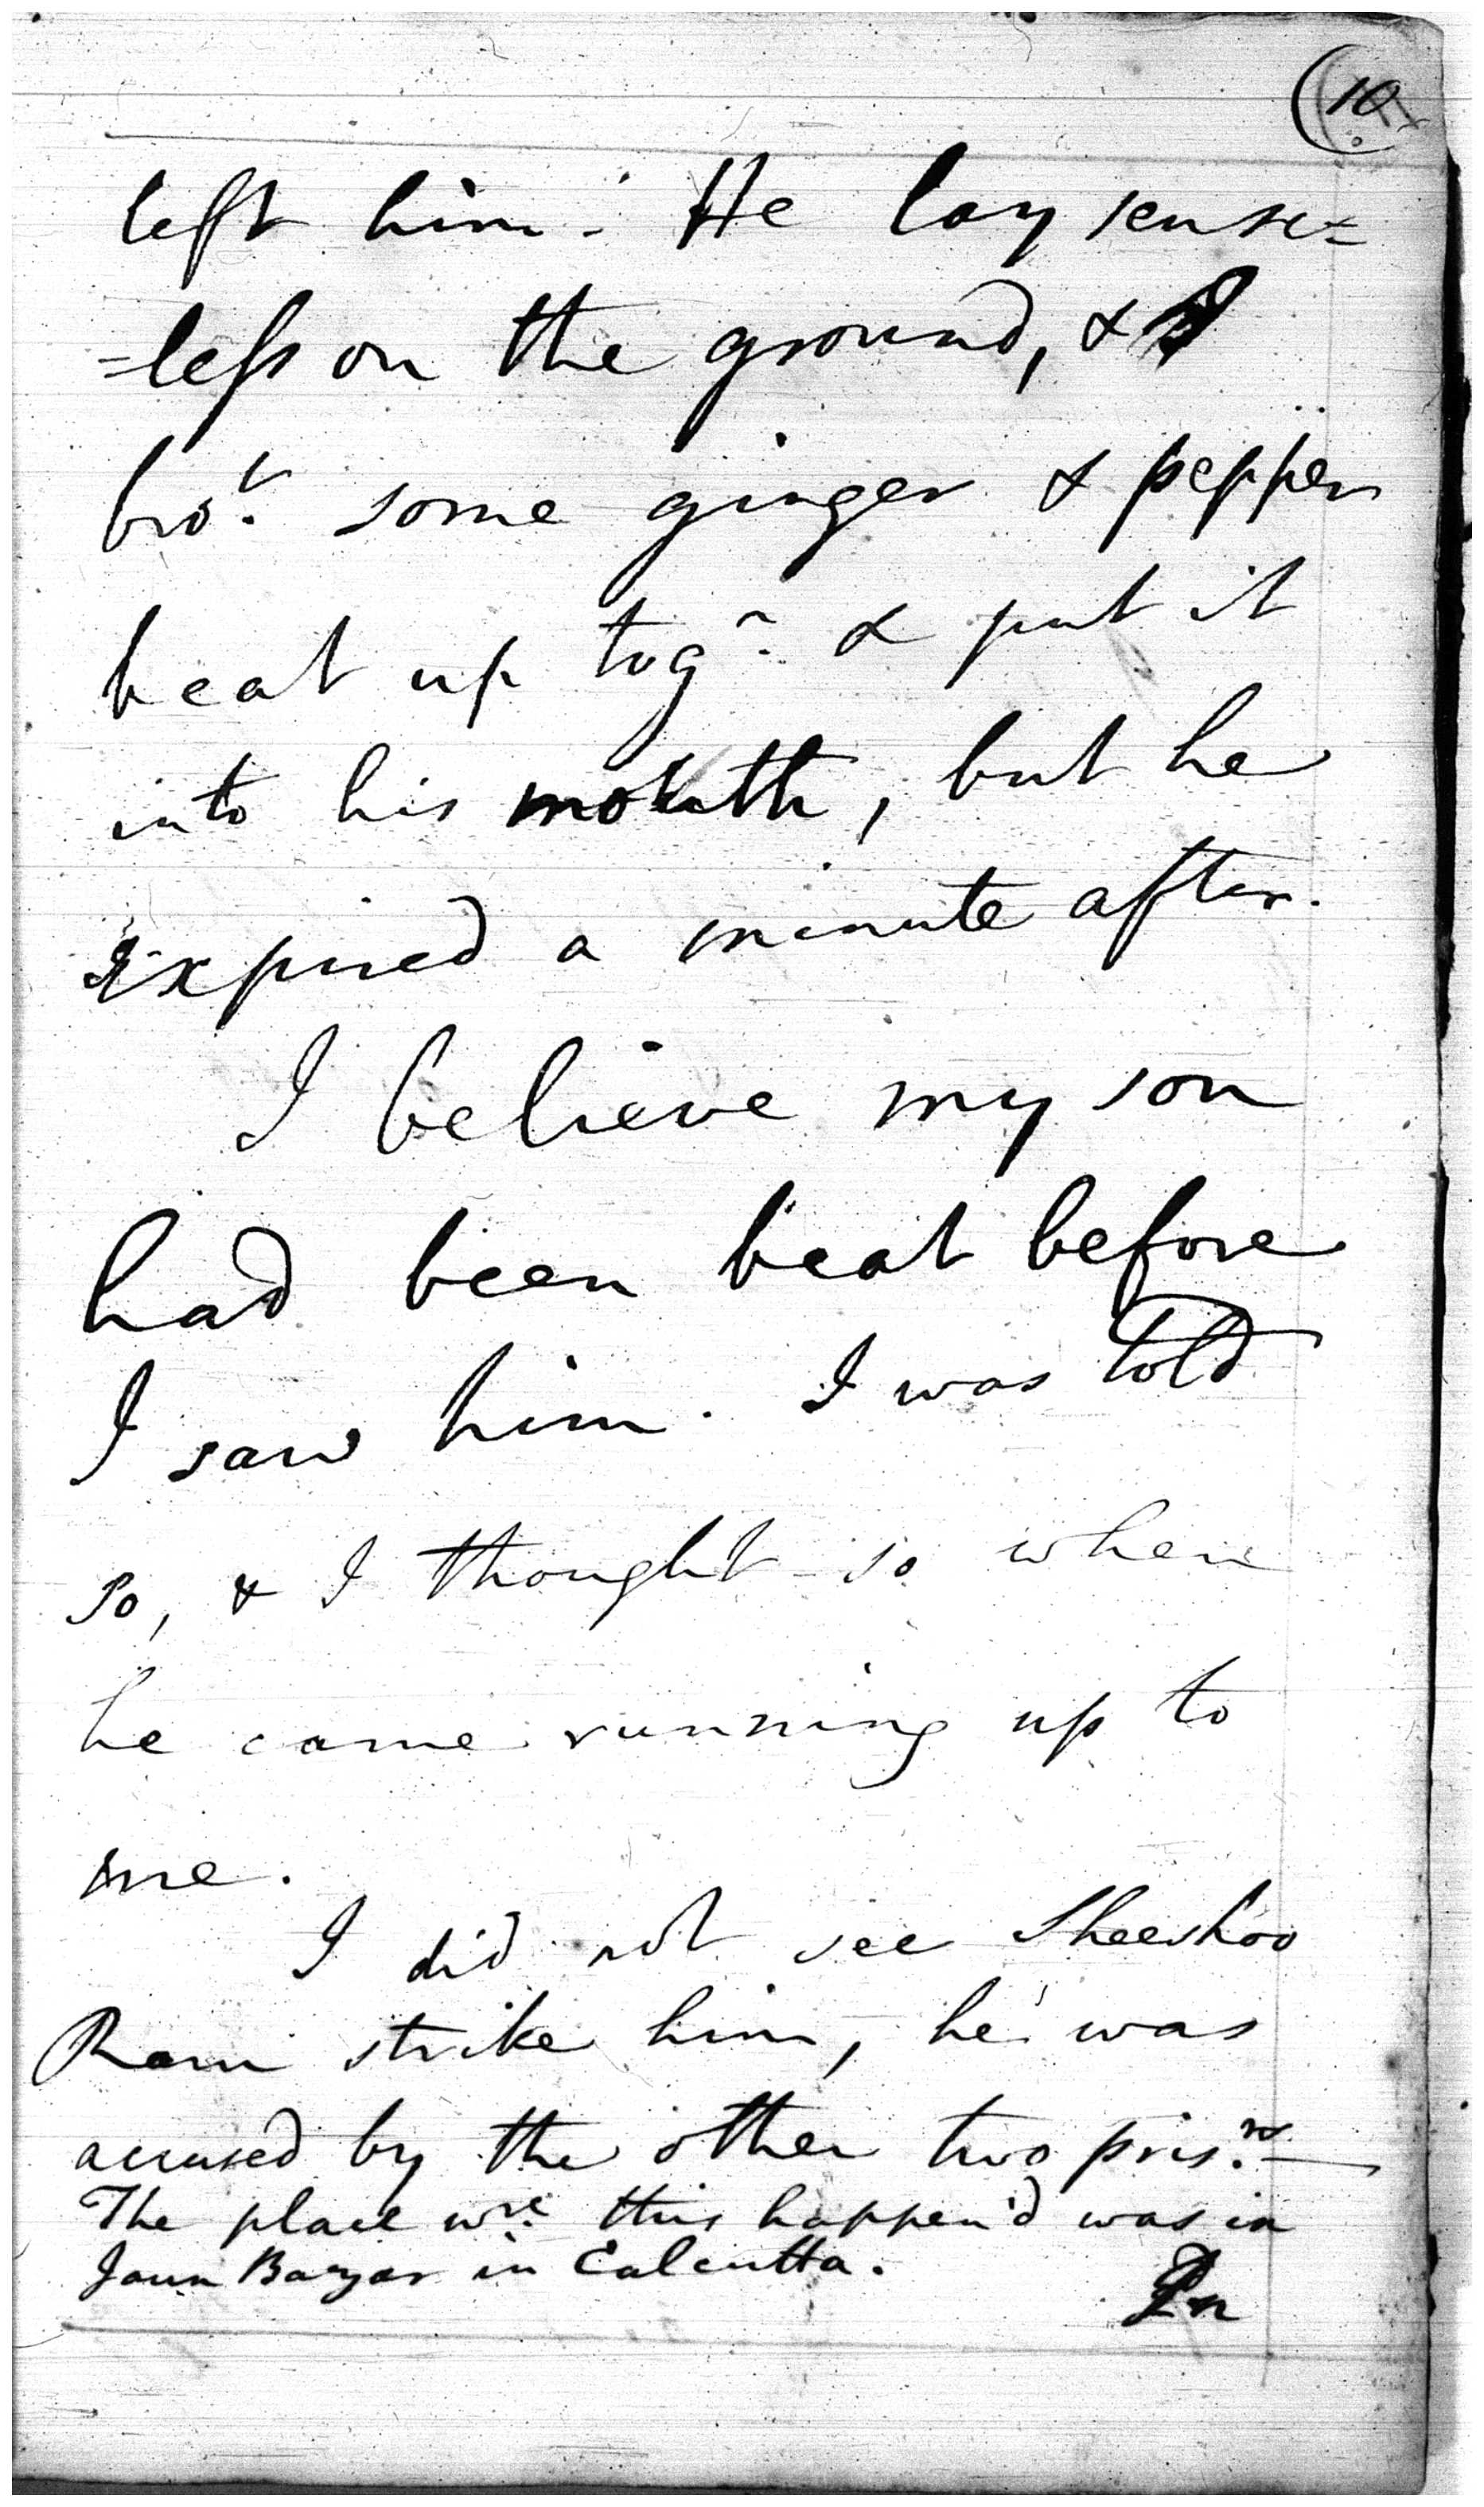 (10
left him. He lay sense=
=less on the ground, & I
bro.t some ginger & pepper
beat up tog.r & put it
into his mouth, but he
expired a minute after.
I believe my son
had been beat before
I saw him. I was told
so, & I thought so when
he came running up to
me.
I did not see Sheeshoo
Ram strike him, he was
accused by the other two pris.rs
The place w.re this happen'd was in
Jaun Bazar in Calcutta.